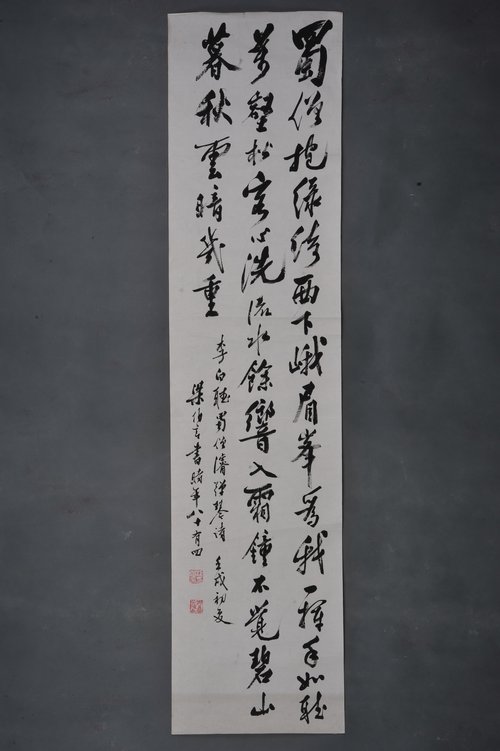 蜀僧抱綠綺西下峨眉峯為我一揮手如聽
萬壑松客心洗流水餘響入霜鐘不覺碧山
暮秋雲暗幾重
李白聽蜀僧濬彈琴詩 壬戌初夏
梁伯言書時年八十有四